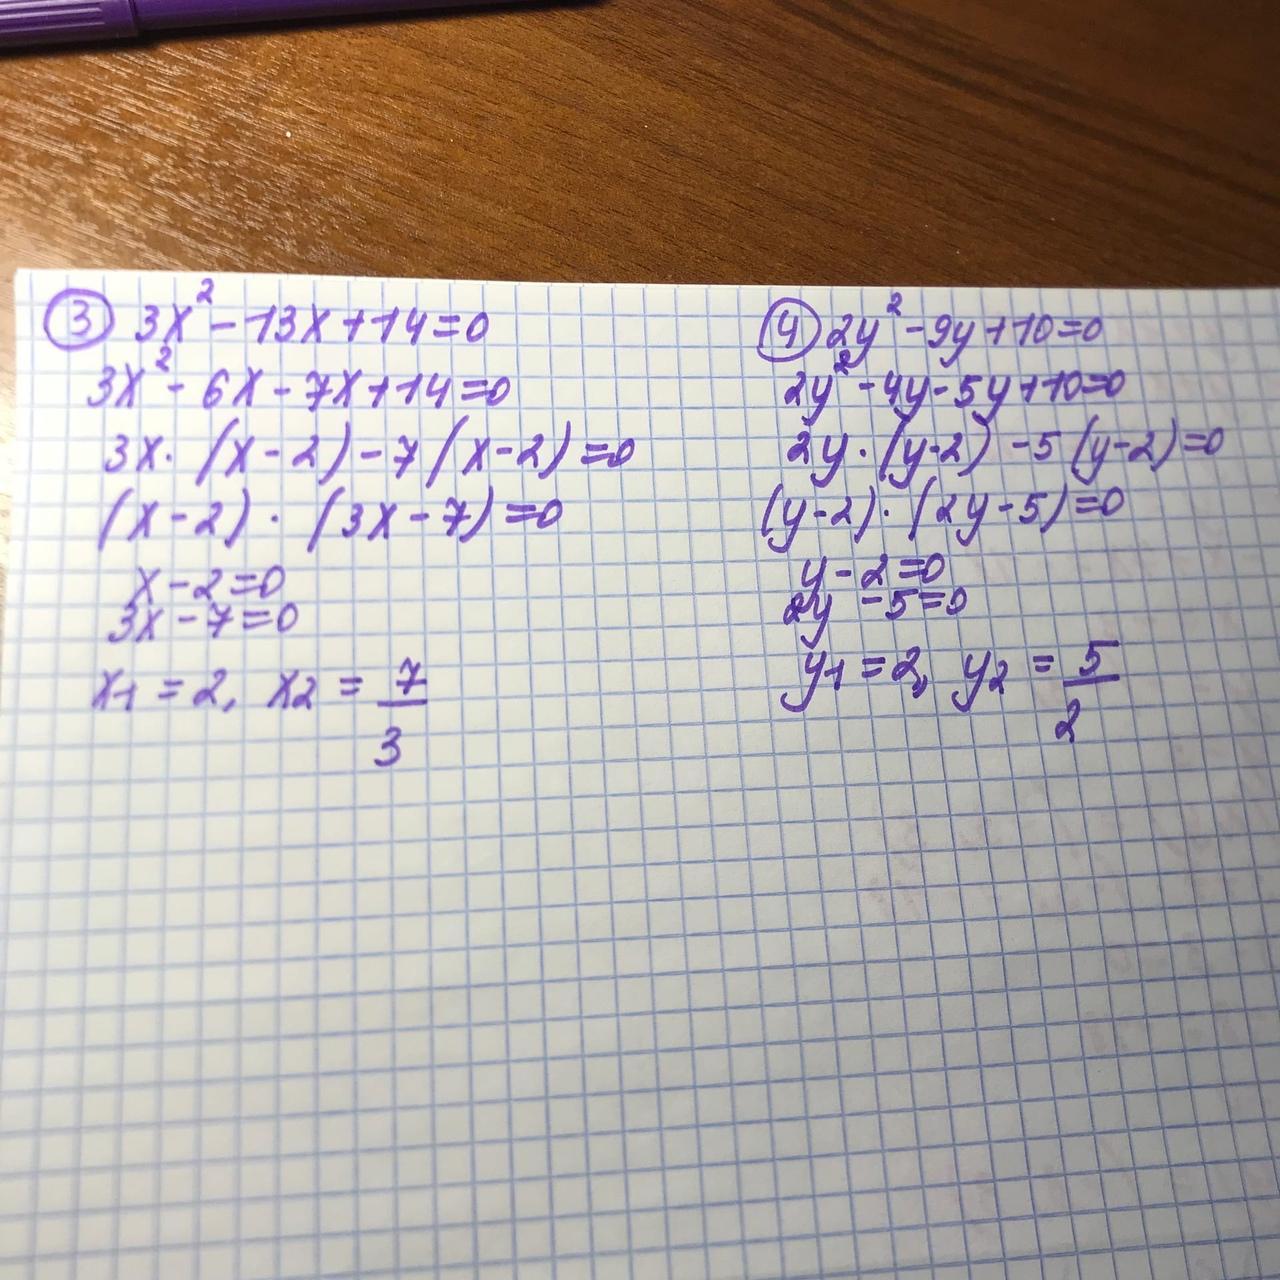 ③ 3x² - 13x + 14 = 0
3x² - 6x - 7x + 14 = 0
3x · (x - 2) - 7 (x - 2) = 0
(x - 2) · (3x - 7) = 0
x - 2 = 0
3x - 7 = 0
x₁ = 2, x₂ = 7/3
④ 2y² - 9y + 10 = 0
2y² - 4y - 5y + 10 = 0
2y · (y - 2) - 5 (y - 2) = 0
(y - 2) · (2y - 5) = 0
y - 2 = 0
2y - 5 = 0
y₁ = 2, y₂ = 5/2